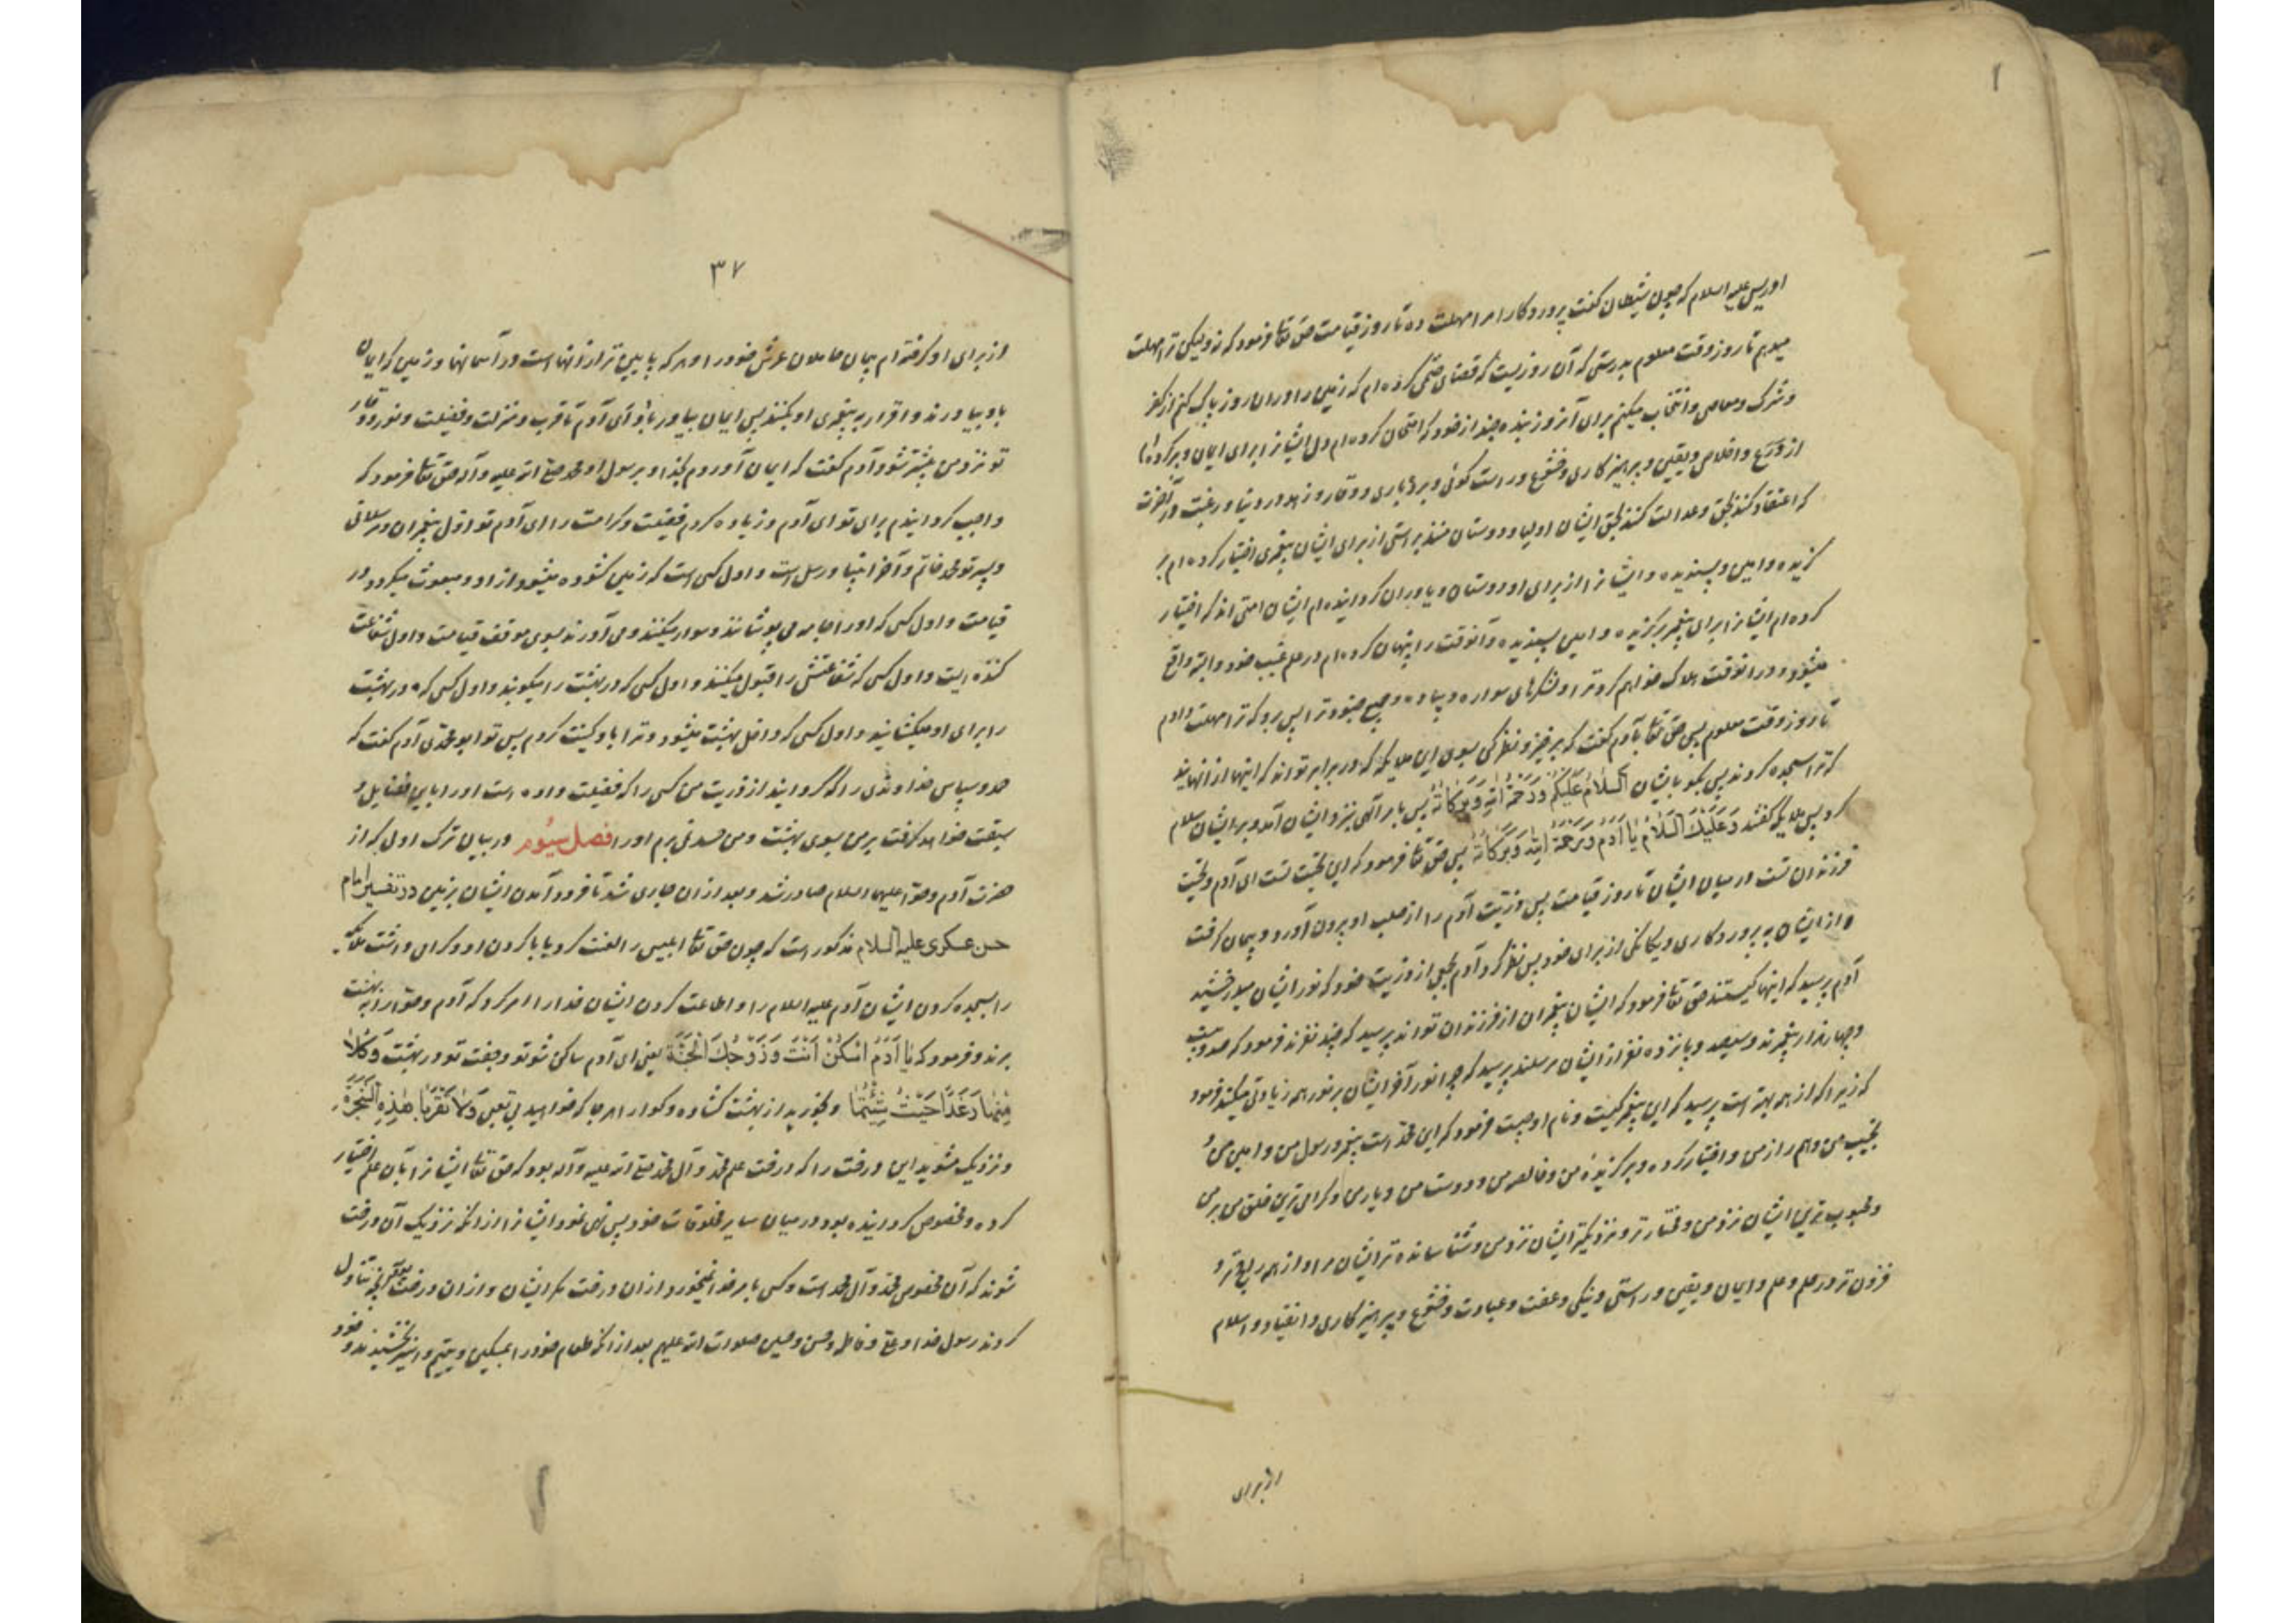 ادریس علیه السلام که چون شیطان گفت پروردگارا مرا مهلت ده تا روز قیامت حق تعا فرمود که نه ولیکن ترا مهلت
میدهم تا روز وقت معلوم بدرستی که آن روزیست که قضای حتمی کرده ام که زمین را در آن روز پاک کنم از کفر
و شرک و معاصی و انتخاب میکنم برای آنروز بنده چند از خود که امتحان کرده ام دل ایشانرا برای ایمان و پر کرده ام
از ورع و اخلاص و یقین و پرهیزکاری و خشوع و راست گوئی و بردباری و وقار و زهد در دنیا و رغبت در آخرت
که اعتقاد کنند بحق و عدالت کنند بحق ایشان اولیا و دوستان منند براستی از برای ایشان پیغمبری اختیار کرده ام بر
گزیده و امین و پسندیده و ایشانرا از برای او دوستان و یاوران گردانیده ام ایشان امتی اند که اختیار
کرده ام ایشانرا برای پیغمبر برگزیده و امین پسندیده و آنوقت را پنهان کرده ام در علم غیب خود و البته واقع
میشود و در انوقت هلاک خواهم کرد ترا و لشکرهای سواره و پیاده و جمیع جنود ترا پس برو که ترا مهلت دادم
تا روز وقت معلوم پس حق تعا بآدم گفت که برخیز و نظر کن بسوی این ملایکه که در برابر تواند که اینها از انهایند
که ترا سجده کردند پس بگو بایشان السلام علیکم ورحمة الله وبرکاته پس بامر آلهی بنزد ایشان آمد و بر ایشان سلام
کرد پس ملایکه گفتند وعلیک السلام یا آدم ورحمة الله وبرکاته پس حق تعا فرمود که این تحیت تست ای آدم و تحیت
فرزندان تست در میان ایشان تا روز قیامت پس ذریت آدم را از صلب او بیرون آورد و پیمان گرفت
از ایشان به پروردکاری و یکانگی از برای خود پس نظر کرد آدم بجمعی از ذریت خود که نور ایشان میدرخشید
آدم پرسید که اینها کیستند حق تعا فرمود که ایشان پیغمبران از فرزندان تواند پرسید که چند نفرند فرمود که صد و بیست
و چهار هزار پیغمبرند و سیصد و پانزده نفر از ایشان مرسلند پرسید که چرا نور آخر ایشان بر نور همه زیادتی میکند فرمود
که زیرا که از همه بهتر است پرسید که این پیغمبر کیست و نام او چیست فرمود که این محمد است پیغمبر و رسول من و امین من و
نجیب من و همراز من و اختیار کرده و برگزیده من و خالص من و دوست من و یار من و کرامی ترین خلق من بر من
و محبوب ترین ایشان نزد من و مختار تر و نزدیکتر ایشان نزد من و شناسانده تر ایشان مرا و از همه راجح تر و
فزون تر در علم و حلم و ایمان و یقین و راستی و نیکی و عفت و عبادت و خشوع و پرهیزکاری و انقیاد و اسلام
از برای
۳۷
از برای او گرفته ام پیمان حاملان عرش خود را و هر که پایین تر از انهاست در آسمانها و زمین که ایمان
باو بیاورند و اقرار به پیغمبری او بکنند پس ایمان بیاور باو ای آدم تا قرب و منزلت و فضیلت و نور و وقار
تو نزد من بیشتر شود آدم گفت که ایمان آوردم بخدا و برسول او محمد صلی الله علیه و آله حق تعا فرمود که
واجب گردانیدم برای تو ای آدم و زیاده کردم فضیلت و کرامت را ای آدم تو اول پیغمبران و مرسلانی
و پسر تو محمد خاتم و آخر انبیا و رسل است و اول کسی است که زمین کشوده میشود از او و مبعوث میکردد در
قیامت و اول کسی که او را جامه می پوشانند و سوار میکنند و می آورند بسوی موقف قیامت و اول شفاعت
کننده ایست و اول کسی که شفاعتش را قبول میکنند و اول کسی که در بهشت را میکوبد و اول کسی که در بهشت
را برای او میکشانید و اول کسی که داخل بهشت میشود و ترا باو کنیت کردم پس تو ابو محمدی آدم گفت که
حمد و سپاس خداوندی را که گردانید از ذریت من کسی را که فضیلت داده است او را باین فضایل و
سبقت خواهد گرفت بر من بسوی بهشت و من حسد نمی برم او را فصل سیوم در بیان ترک اولی که از
حضرت آدم و حوا علیهما السلام صادر شد و بعد از آن جاری شد تا فرود آمدن ایشان بزمین در تفسیر امام
حسن عسکری علیه السلام مذکور است که چون حق تعا ابلیس را لعنت کرد با ابا کردن او و گرامی داشت ملائکه
را بسجده کردن ایشان آدم علیه السلام را و اطاعت کردن ایشان خدا را امر کرد که آدم و حوا را به بهشت
برند و فرمود که یا آدم اسکن انت وزوجک الجنة یعنی ای آدم ساکن شو تو و جفت تو در بهشت وکلا
منها رغدا حیث شئتما و بخورید از بهشت کشاده و گوارا هر جا که خواهید بی تعبی ولا تقربا هذه الشجرة
و نزدیک مشوید این درخت را که درخت علم محمد و آل محمد صلی الله علیه و آله بود که حق تعا ایشانرا بآن علم اختیار
کرده و مخصوص گردانیده بود در میان سایر مخلوقات خود پس نهی نمود ایشانرا از انکه نزدیک آن درخت
شوند که آن مخصوص محمد و آل محمد است و کسی بامر خدا نمیخورد از ان درخت مگر ایشان و از ان درخت بود آنچه تناول
کردند رسول خدا و علی و فاطمه و حسن و حسین صلوات الله علیهم بعد از انکه طعام خود را بمسکین و یتیم و اسیر بخشیدند و خود